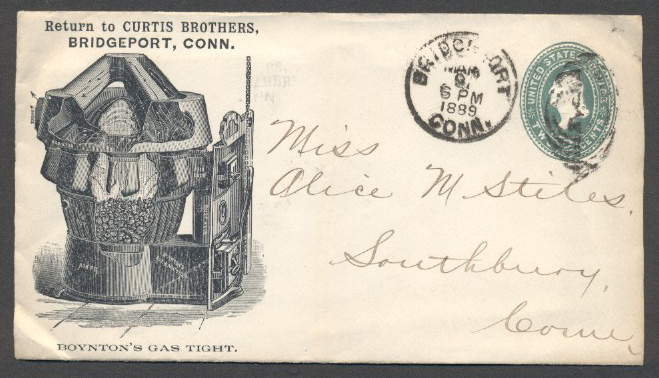 Return to CURTIS BROTHERS,
BRIDGEPORT, CONN.
BRIDGEPORT
MAR
6 PM
1889
CONN.
UNITED STATES
Miss
Alice M Stiles.
Southbury,
Conn,
BOYNTON'S GAS TIGHT.